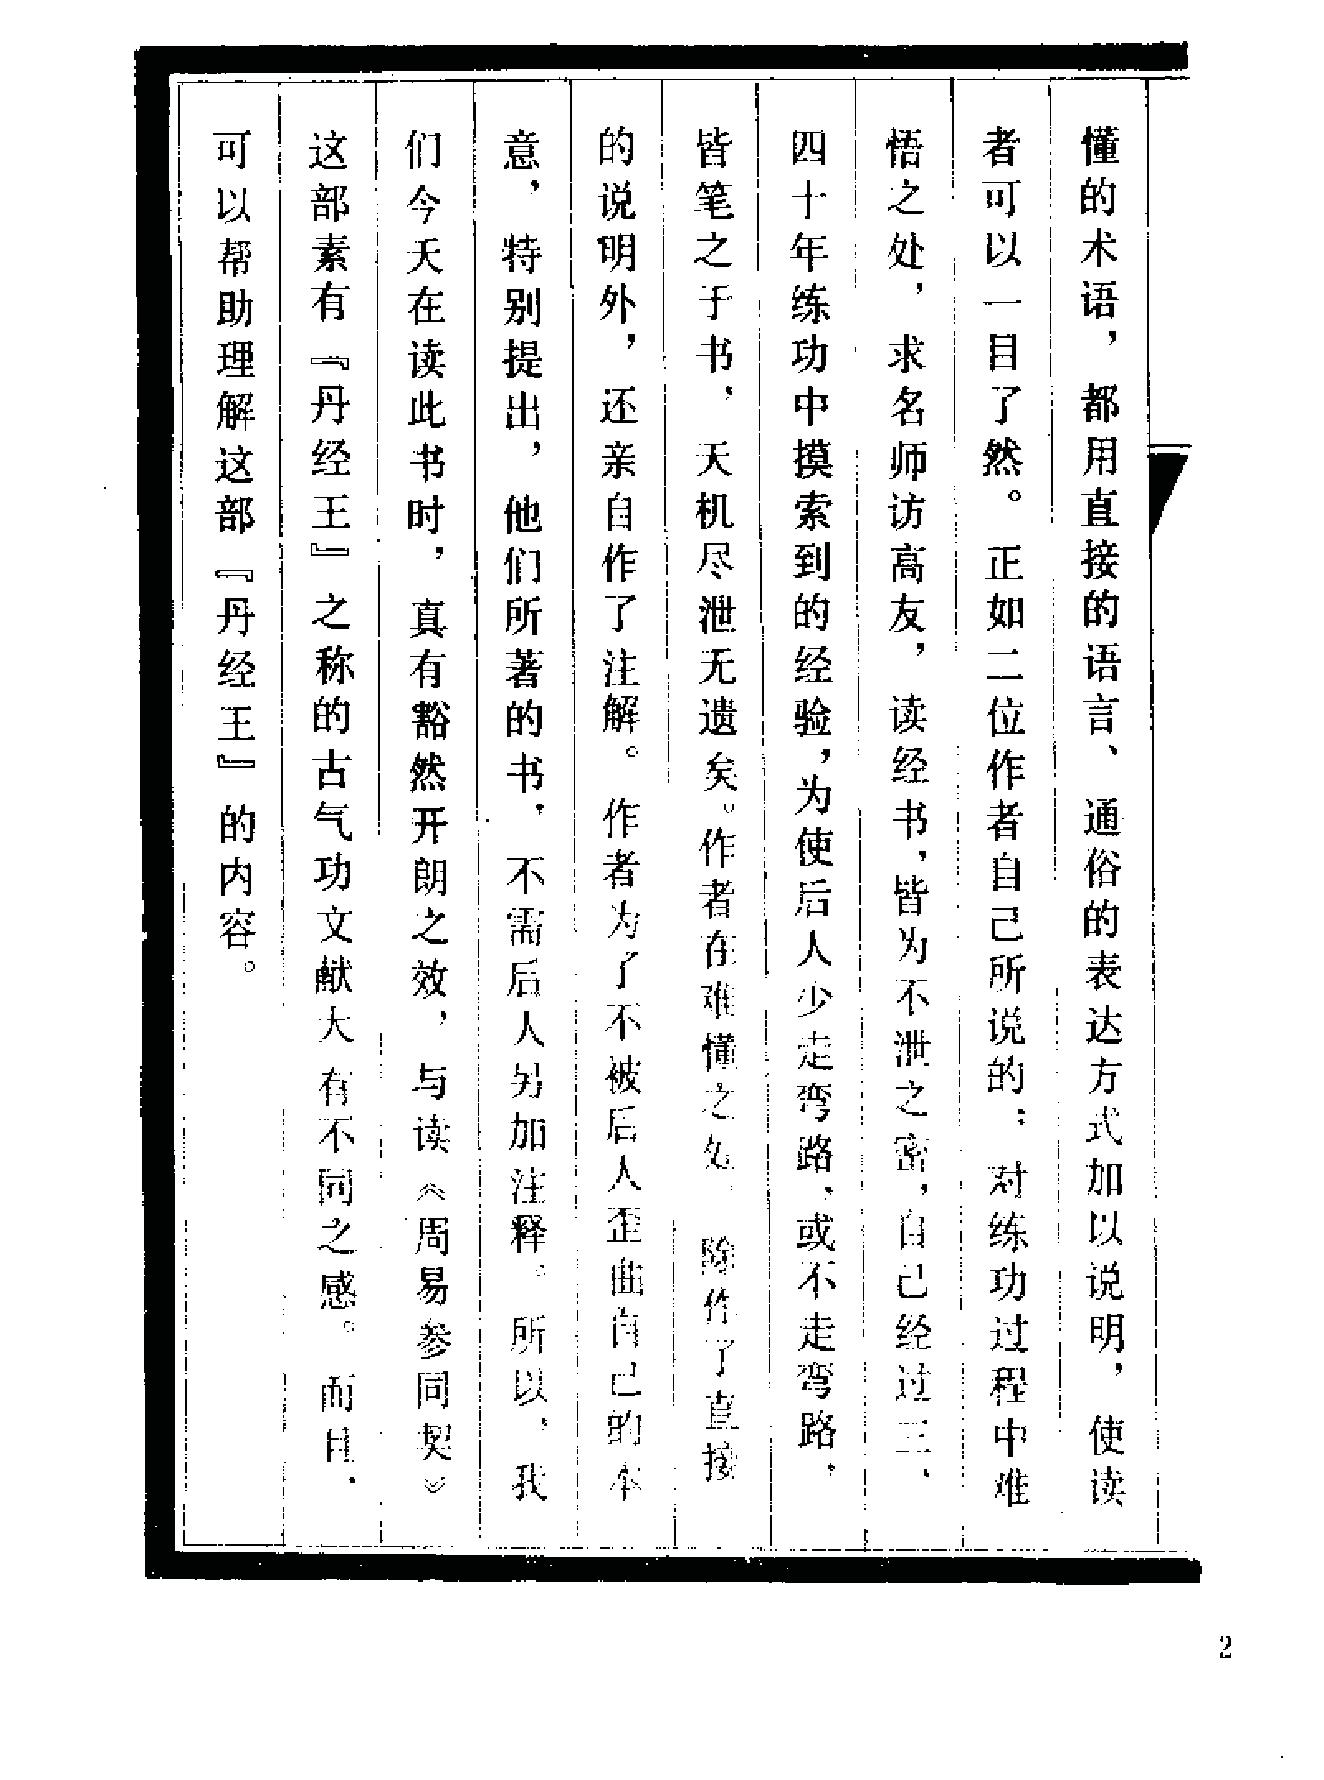 懂的术语，都用直接的语言、通俗的表达方式加以说明，使读
者可以一目了然。正如二位作者自己所说的：对练功过程中难
悟之处，求名师访高友，读经书，皆为不泄之密，自己经过三、
四十年练功中摸索到的经验，为使后人少走弯路，或不走弯路，
皆笔之于书，天机尽泄无遗矣。作者在难懂之处，除作了直接
的说明外，还亲自作了注解。作者为了不被后人歪曲自己的本
意，特别提出，他们所著的书，不需后人另加注释。所以，我
们今天在读此书时，真有豁然开朗之效，与读《周易参同契》
这部素有『丹经王』之称的古气功文献大有不同之感。而且，
可以帮助理解这部『丹经王』的内容。
2